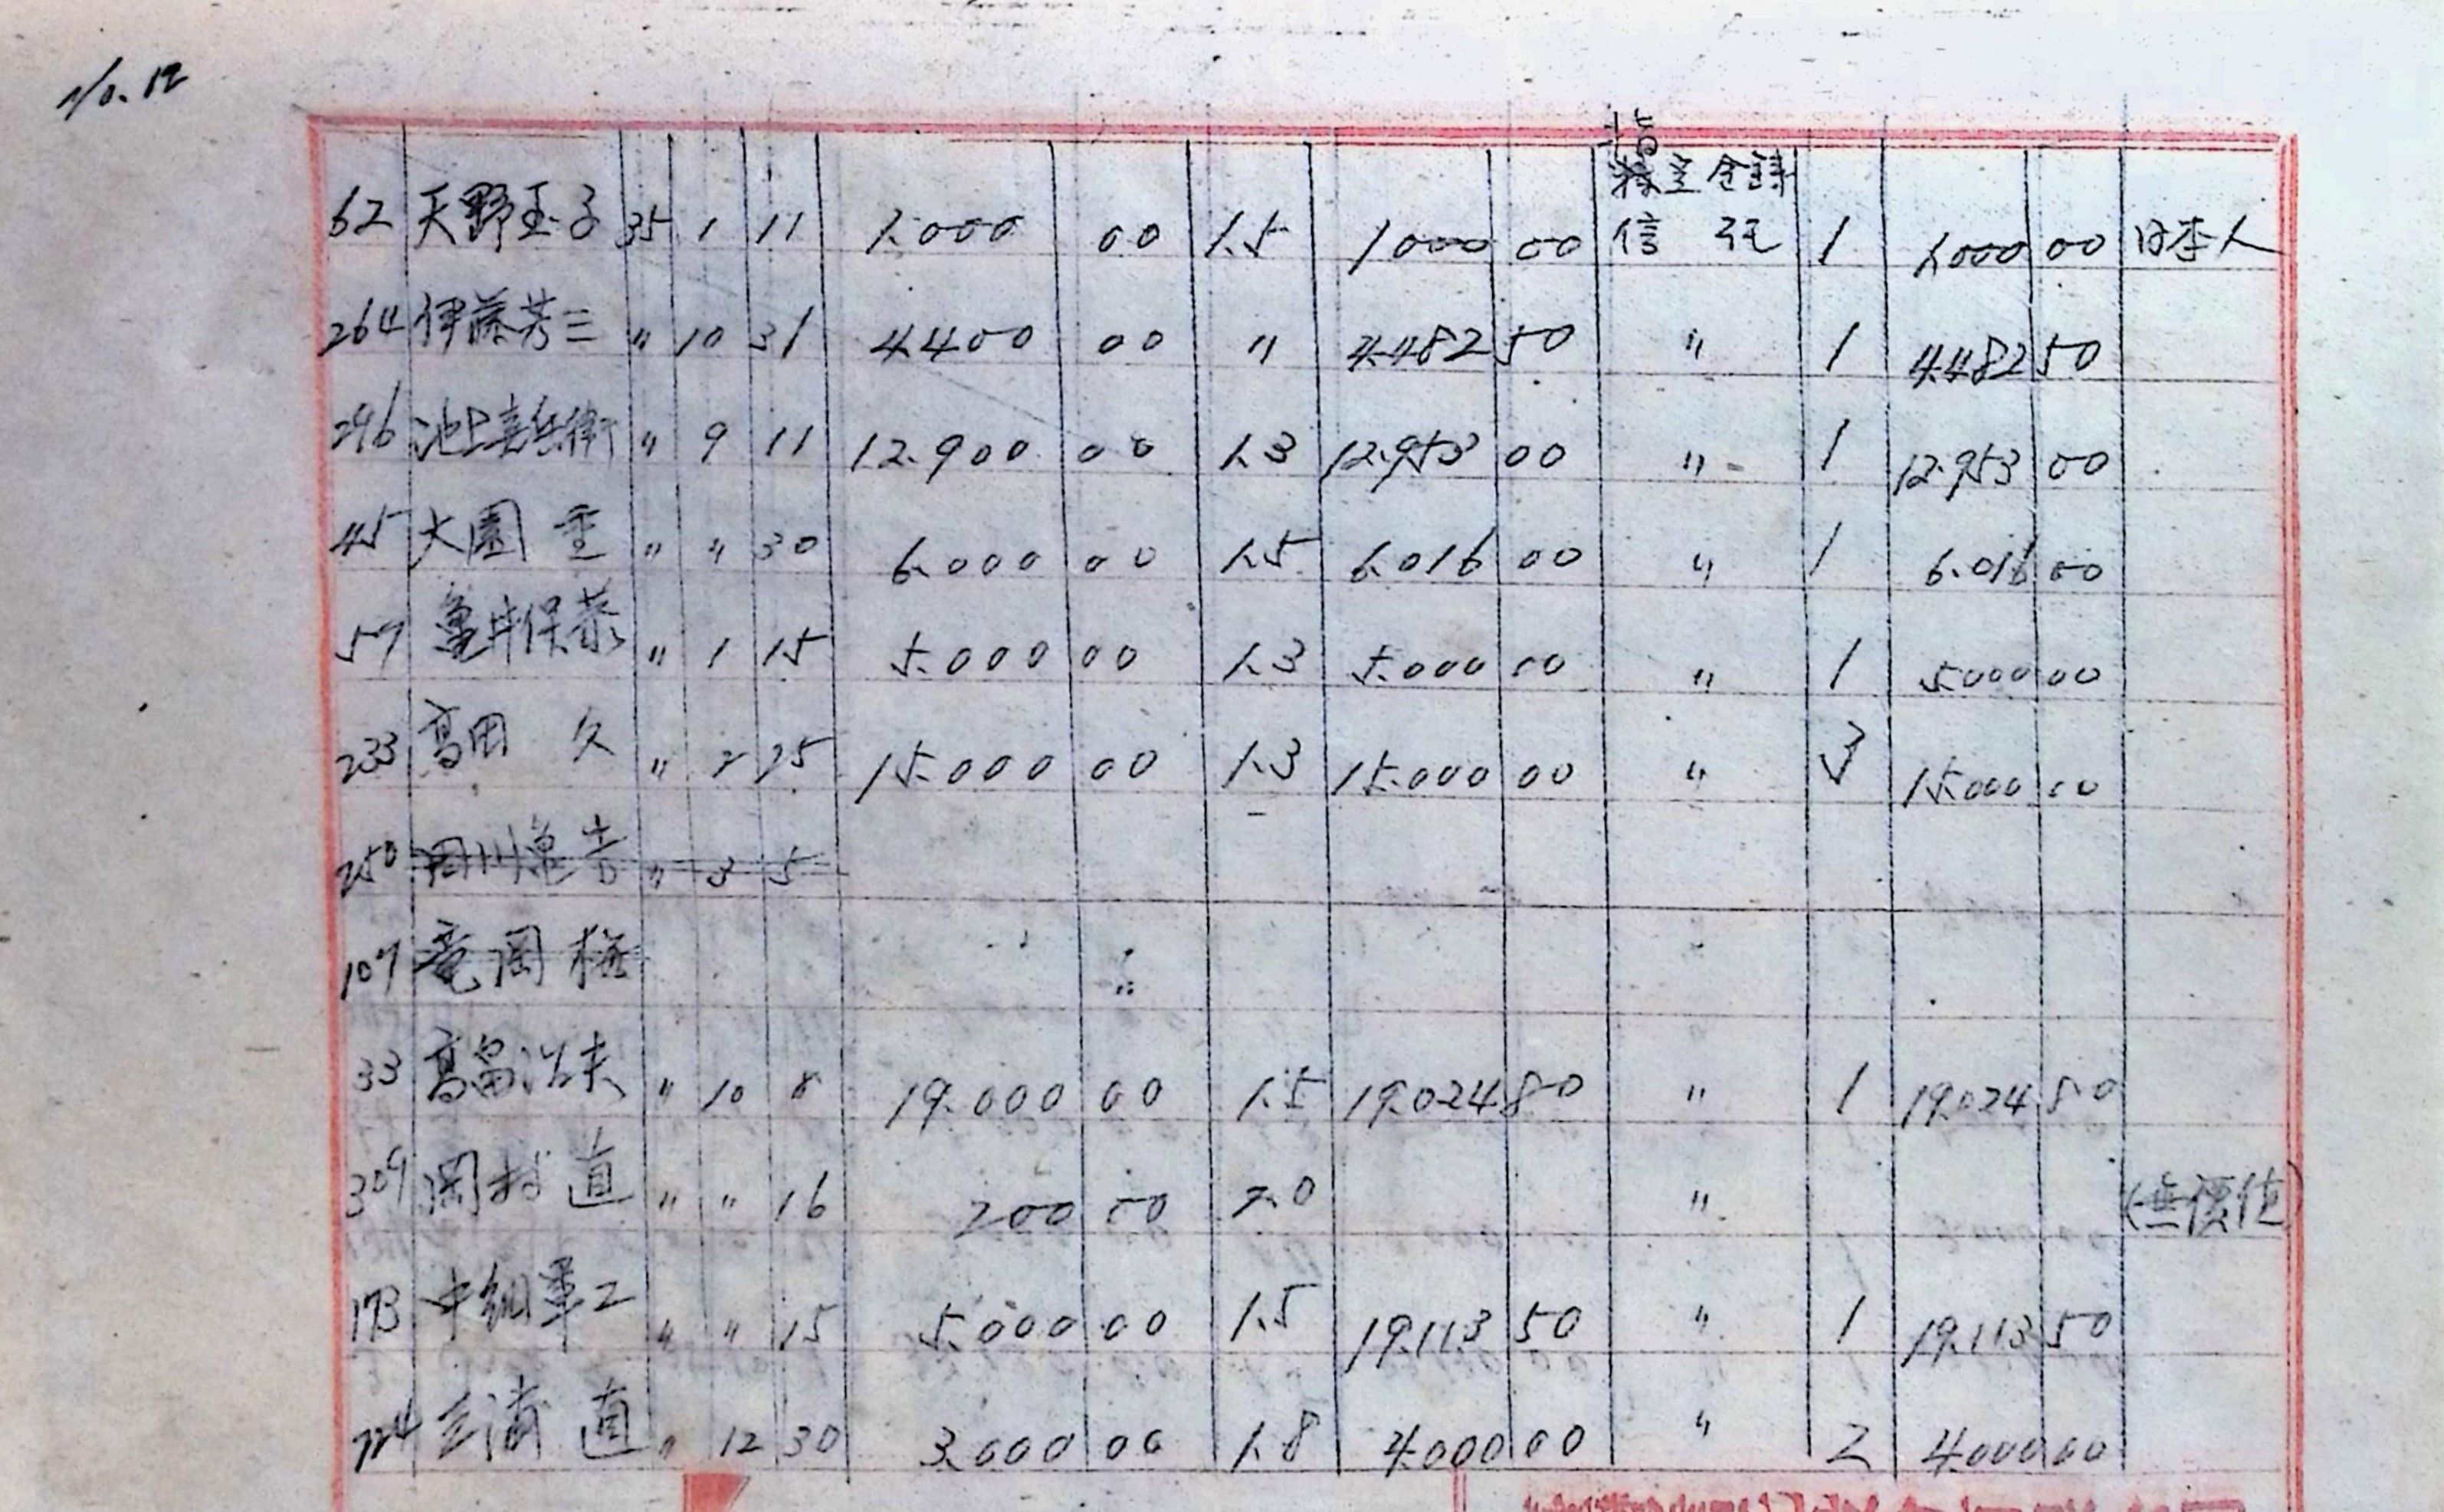 No. 12
62 天野玉子 35 1 11 1.000 00 1.5 1000 00 信 託 1 1.000 00 日本人
264 伊藤芳三 〃 10 31 4.400 00 〃 4.482 50 〃 1 4.482 50
296 池上喜兵衛 〃 9 11 12.900 00 1.3 12.953 00 〃 1 12.953 00
45 大園 重 〃 〃 30 6.000 00 1.5 6.016 00 〃 1 6.016 00
57 亀井保恭 〃 1 15 5.000 00 1.3 5.000 00 〃 1 5.000 00
233 高田 久 〃 2 25 15.000 00 1.3 15.000 00 〃 3 15.000 00
250 田川亀吉 〃 3 5
107 竜岡
33 高畠治夫 〃 10 8 19.000 00 1.5 19.024 80 〃 1 19.024 80
309 岡村 直 〃 〃 16 200 00 2.0 〃 (無價値)
173 中 〃 〃 15 5.000 00 1.5 19.113 50 〃 1 19.113 50
224 直 〃 12 30 3.000 00 1.8 4.000 00 〃 2 4.000 00